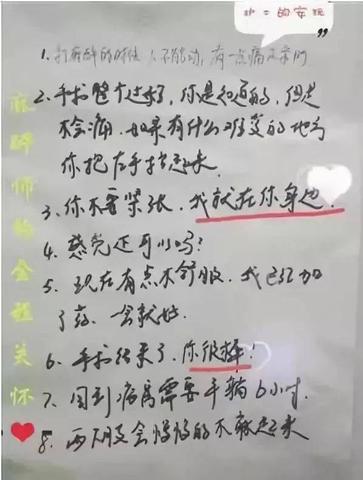 护士的安慰
”
1. 打麻醉的时候,不能动,有一点痛正常的
2. 手术整个过程,你是知道的,但是
不会痛.如果有什么难受的地方
你把右手抬起来
3. 你不要紧张.我就在你身边.
4. 感觉还可以吗?
5. 现在有点不舒服,我已经加
了药.一会就好.
6. 手术结束了.你很棒!
7. 回到病房需要平躺6小时.
8. 两下肢会慢慢的不麻起来
麻醉师的全程关怀